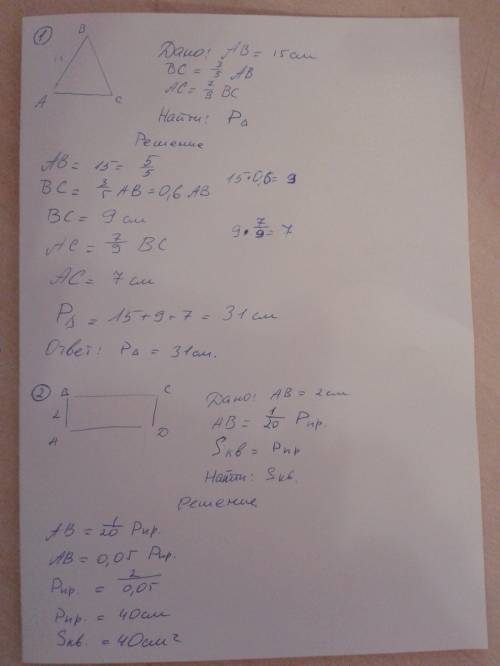 1
B
Дано: AB = 15 см
15
BC = 3/5 AB
AC = 7/9 BC
A C
Найти: P△
Решение
AB = 15 = 5/5
BC = 3/5 AB = 0,6 AB
15 · 0,6 = 9
BC = 9 см
AC = 7/9 BC
9 · 7/9 = 7
AC = 7 см
P△ = 15 + 9 + 7 = 31 см
Ответ: P△ = 31 см.
2
B C
Дано: AB = 2 см
2
AB = 1/20 Pпр.
A D
Sкв = Pпр
Найти: Sкв.
Решение
AB = 1/20 Pпр.
AB = 0,05 Pпр.
Pпр. = 2/0,05
Pпр. = 40 см
Sкв. = 40 см²